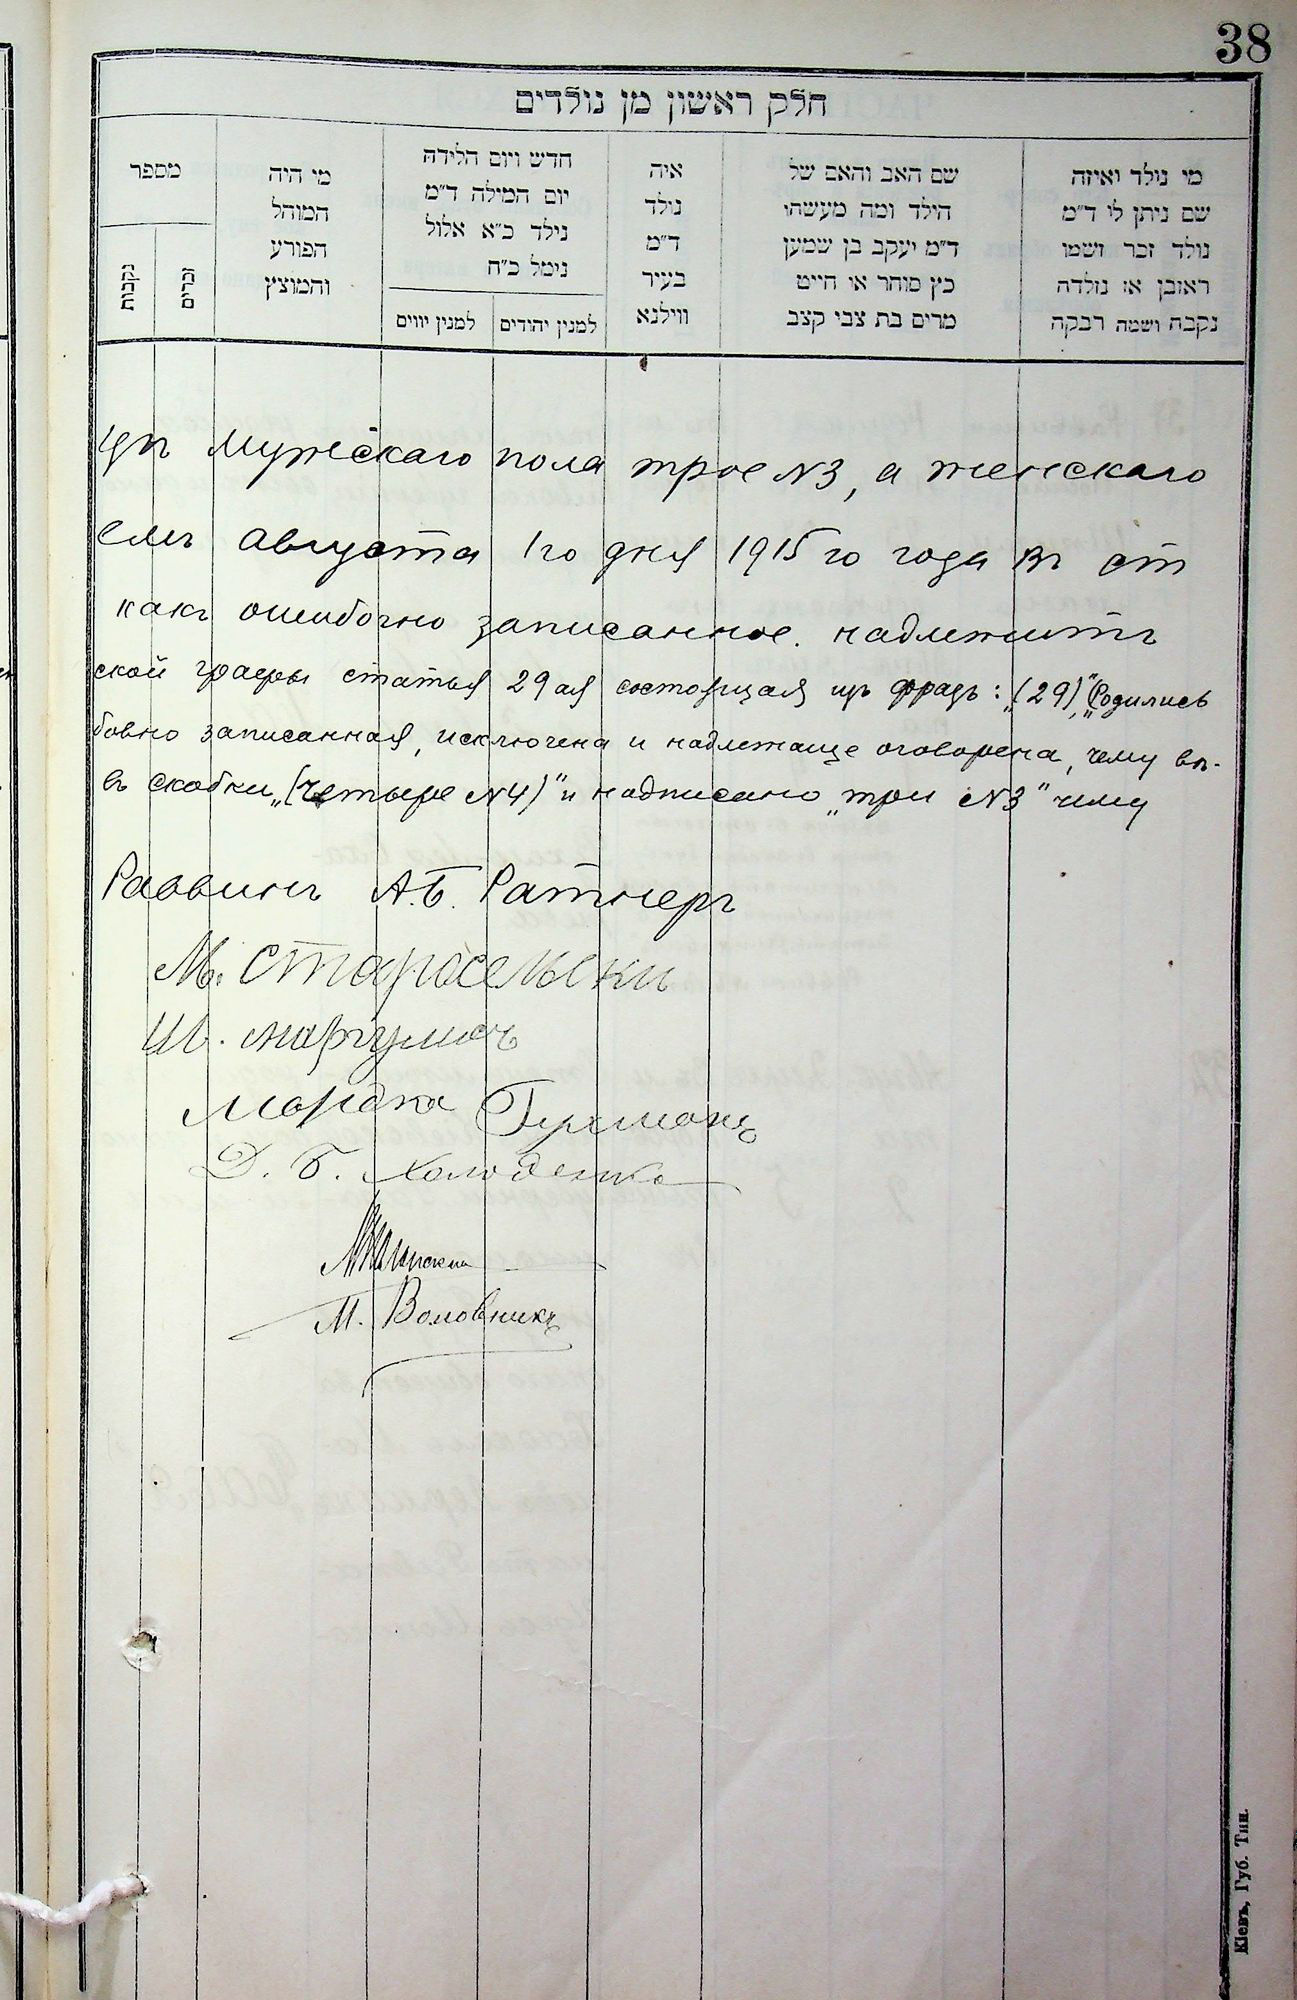 38
חלק ראשון מן נולדים
מי נולד ואיזה
שם ניתן לו ד״מ
נולד זכר ושמו
ראובן או נולדה
נקבה ושמה רבקה
שם האב והאם של
הילד ומה מעשהו
ד״מ יעקב בן שמעון
כץ סוחר או חייט
מרים בת צבי קצב
איה
נולד
ד״מ
בעיר
ווילנא
חדש ויום הלידה
יום המילה ד״מ
נילד כ״א אלול
נימל כ״ח
למנין יהודים
למנין יווים
מי היה
המוהל
הפורע
והמוצץ
מספר
זכרים
נקבות
цѣ мужескаго пола трое №3, а женскаго
емъ августа 1го дня 1915го года въ ст
какъ ошибочно записанное. надлежитъ
ской графы статья 29ая состоящая изъ фразъ: „(29)„ „Родились
бочно записанная, исключена и надлежаще оговорена, чему вѣ-
въ скобки „(четыре №4)" и надписано „три №3" чему
Раввинъ А.Б. Ратнеръ
М. Старосельски
Ш. Маргулисъ
Мордко Гухманъ
Д. Б. Холоденко
М. Воловникъ
Кіевъ, Губ. Тип.